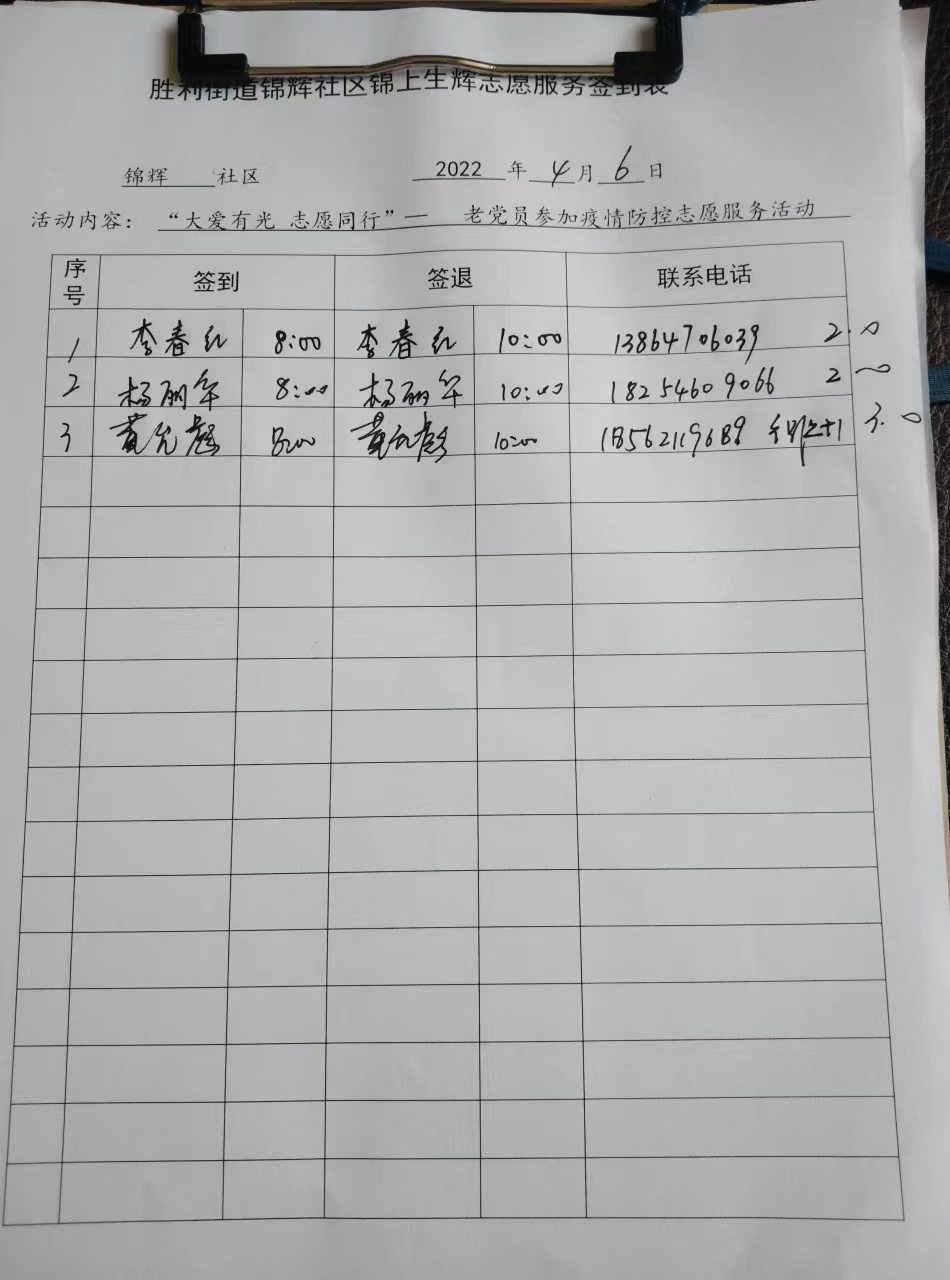 胜利街道锦辉社区锦上生辉志愿服务签到表
锦辉 社区 2022 年 4 月 6 日
活动内容： “大爱有光 志愿同行”— 老党员参加疫情防控志愿服务活动
序号 签到 签退 联系电话
1 李春红 8:00 李春红 10:00 13864706039 2.0
2 杨丽华 8:00 杨丽华 10:00 18254609066 2.0
3 黄 8:00 黄 10:00 18562119689 +1 3.0